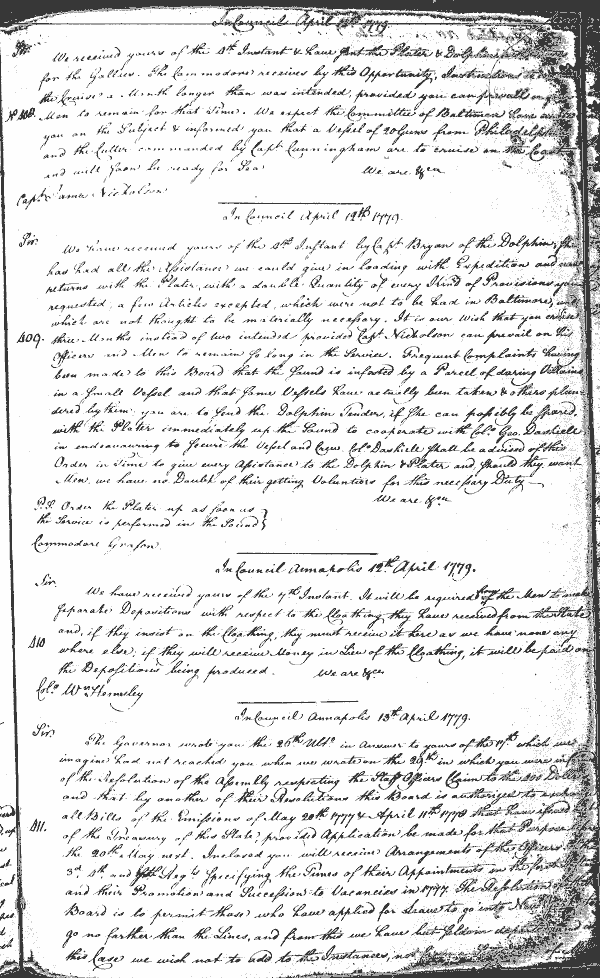 In Council April 12th 1779
Sir.
We received yours of the 4th Instant & have sent the Plater & Dolphin
for the Gallies. The Commodore receives by this Opportunity, Instructions to
the Cruise a Month longer than was intended, provided you can prevail on
No 408. Men to remain for that Time. We expect the Committee of Baltimore have
you on the Subject & informed you that a Vessel of 20 Guns from Philadelphia
and the Cutter commanded by Capt Cunningham are to cruise on the Coast
and will soon be ready for Sea We are &ca
Capt. James Nicholson
In Council April 12th 1779.
Sir.
We have received yours of the 4th Instant by Capt Bryan of the Dolphin, She
has had all the Assistance we could give in loading with Expedition and
returns with the Plater, with a double Quantity of every Kind of Provisions you
requested, a few Articles excepted, which were not to be had in Baltimore, and
which are not thought to be materially necessary. It is our Wish that you cruise
409. three Months instead of two intended provided Capt Nicholson can prevail on his
Officers and Men to remain so long in the Service. Frequent Complaints having
been made to this Board that the Sound is infested by a Parcel of daring Villains
in a Small Vessel and that some Vessels have actually been taken & others plun-
dered by him, you are to send the Dolphin Tender, if She can possibly be spared,
with the Plater immediately up the Sound to cooperate with Colo. Geo. Dashiell
in endeavouring to secure the Vessel and Crew. Colo Dashiell shall be advised of this
Order in Time to give every Assistance to the Dolphin & Plater and should they want
Men, we have no Doubt of their getting Voluntiers for this necessary Duty
We are &ca
P.S. Order the Plater up as soon as
the Service is performed in the Sound}
Commodore Grason.
In Council Annapolis 12th April 1779.
Sir
We have received yours of the 7th Instant. It will be required of the Men to make
separate Depositions with respect to the Cloathing, they have received from the State
410 and, if they insist on the Cloathing, they must receive it here as we have none any
where else, if they will receive Money in Lieu of the Cloathing, it will be paid on
the Depositions being produced. We are &ca
Colo Wm Hemsley
In Council Annapolis 13th April 1779.
Sir.
The Governor wrote you the 26th Ulto in answer to yours of the which we
imagine had not reached you when we wrote on the 29th in which you were
of the Resolution of the Assembly respecting the Staff Officers Claim to the 200 Dollars
and that by another of their Resolutions this Board is authorized to
411. all Bills of the Emissions of May 20th 1777 & April 11th 1778 that have
of the Treasury of this State, provided Application be made for that Purpose
the 20th May next. Inclosed you will receive Arrangements of the Officers
3d. 4th and Regts Specifying the Times of their Appointments
and their Promotion and Succession to Vacancies in 1777. The Resolution
Board is to permit those who have applied for Leave to go into New
go no farther than the Lines, and from this we have but seldom
this Case we wish not to add to the Instances, not